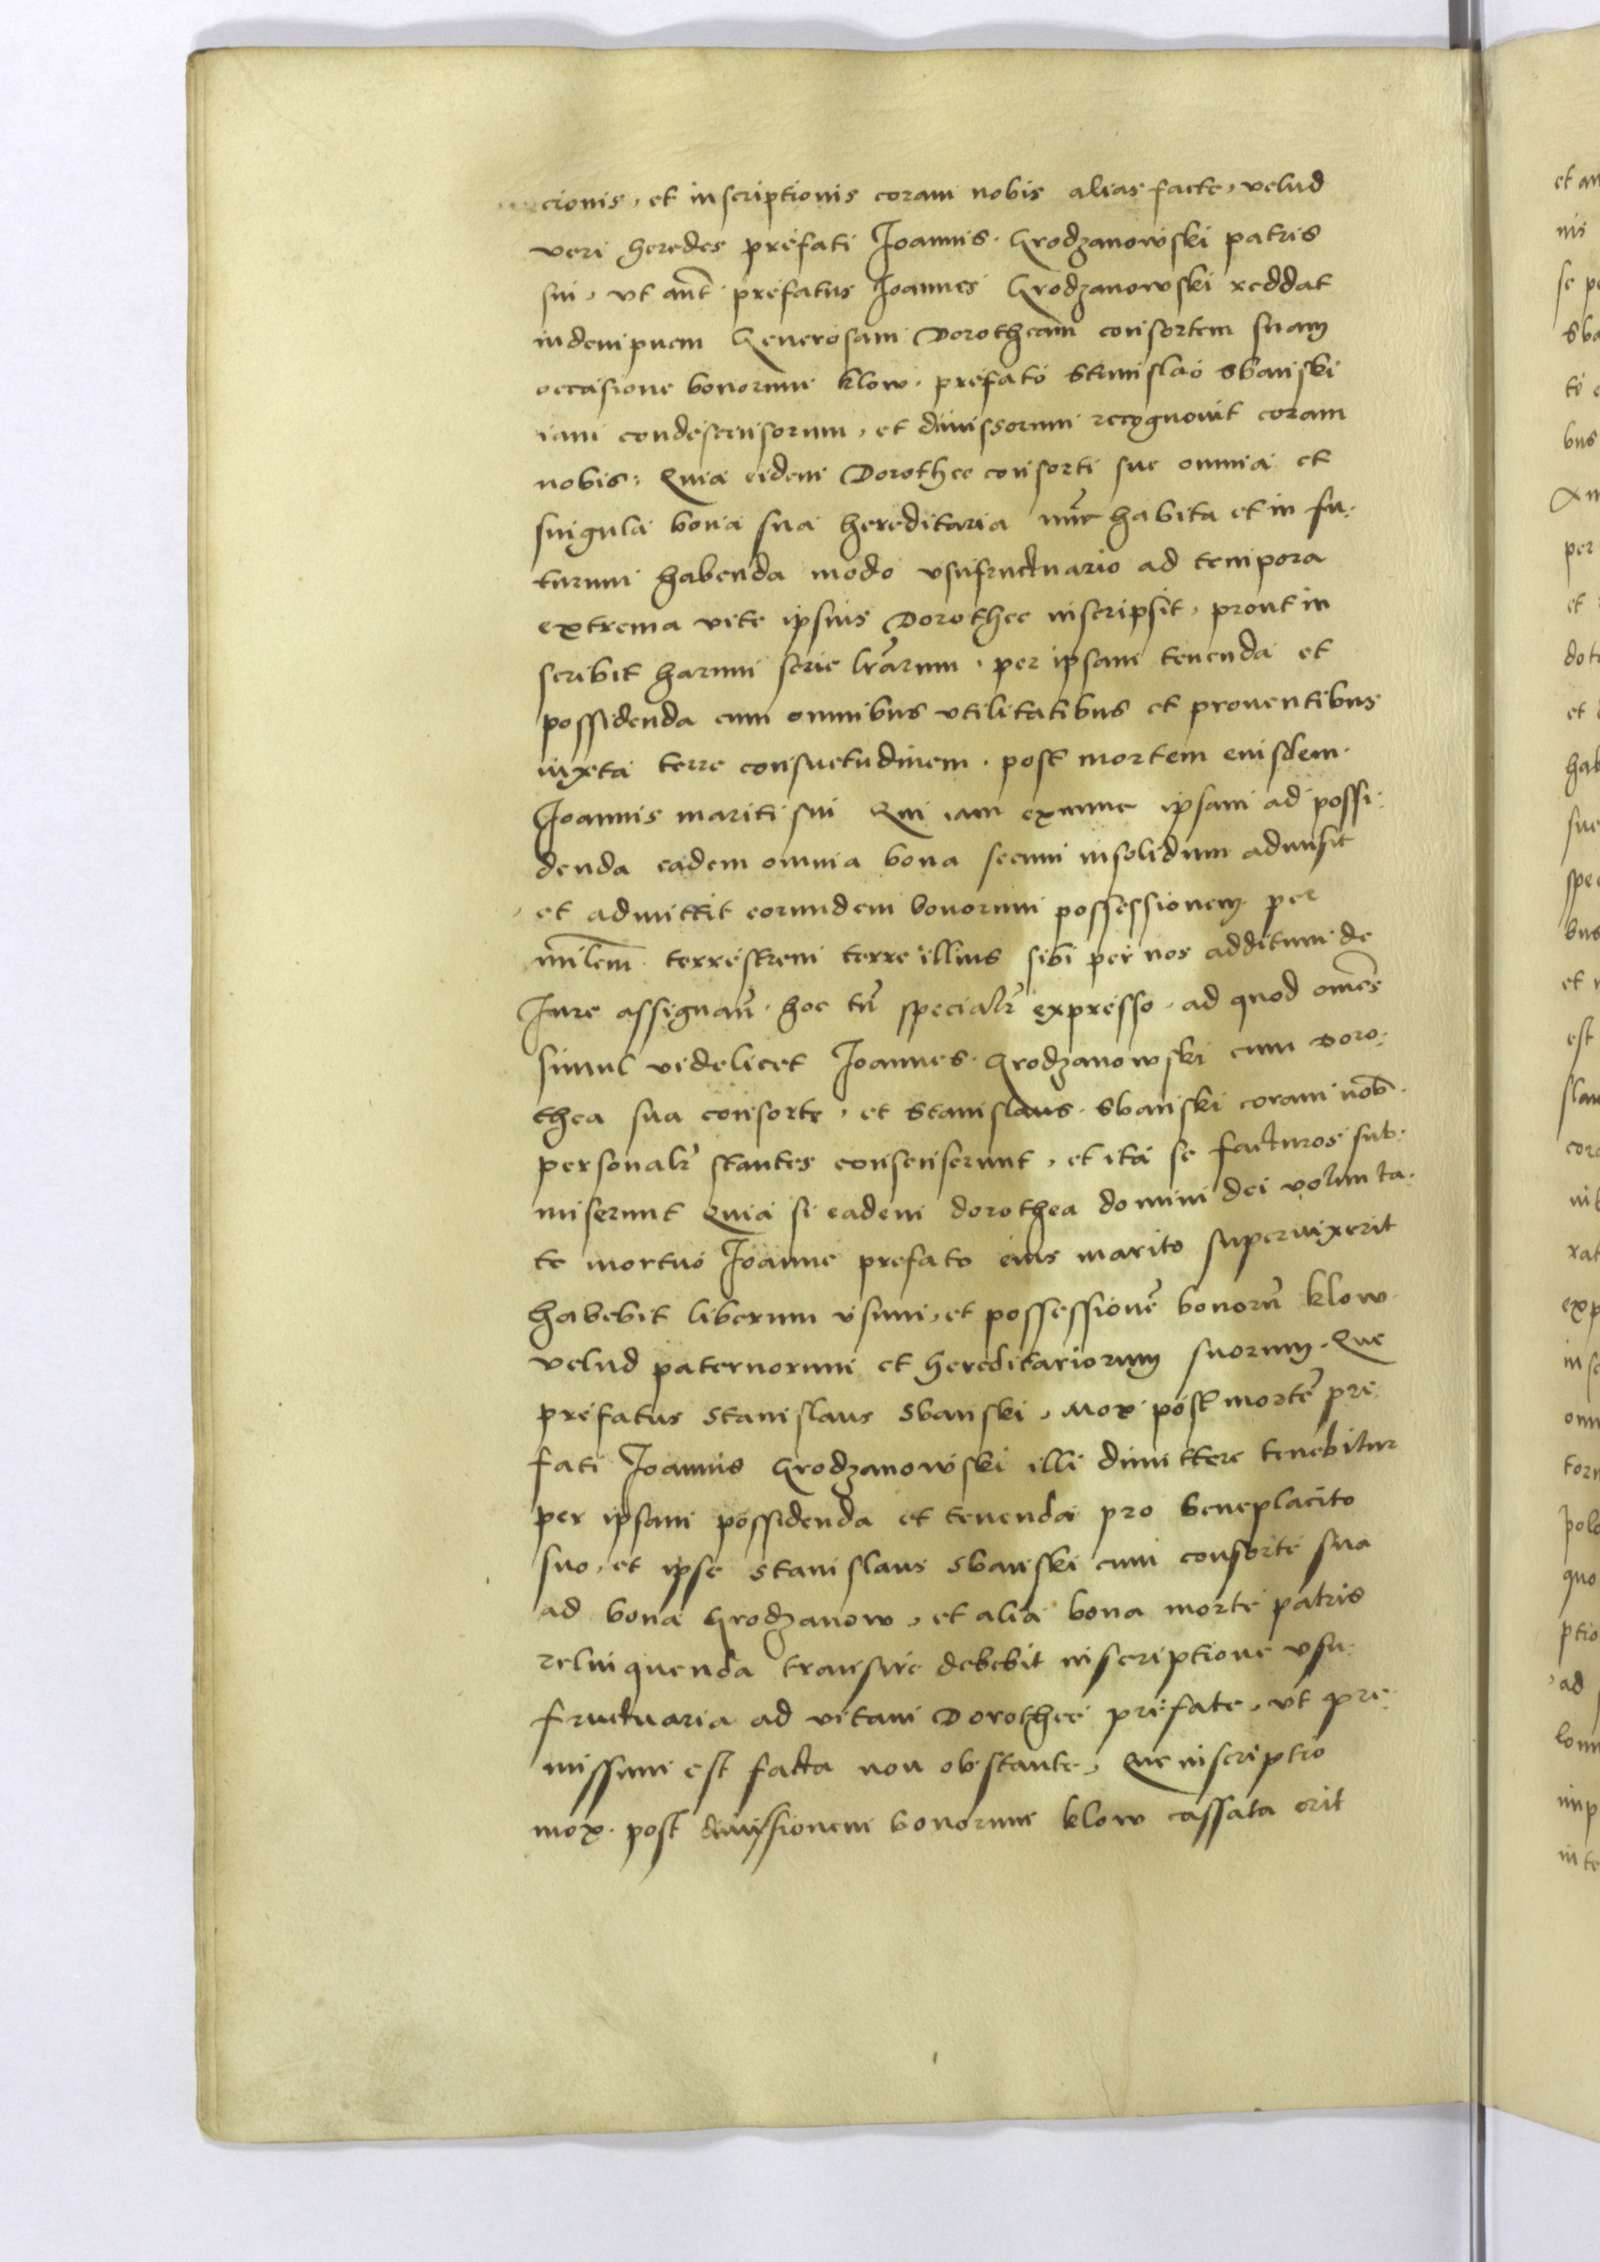 cionis, et inscriptionis coram nobis alias facte, velud
veri heredes prefati Joannis Grodzanowski patris
sui, vt aut prefatus Joannes Grodzanowski reddat
indempnem Generosam Dorotheam consortem suam
occasione bonorum klow prefato Stanislao Sbanski
iam condescensorum, et dimissorum recognouit coram
nobis: Quia eidem Dorothee consorti sue omnia et
singula bona sua hereditaria nunc habita et in fu:
turum habenda modo vsufructuario ad tempora
extrema vite ipsius Dorothee inscripsit, prout in
scribit harum serie lrarum, per ipsam tenenda et
possidenda cum omnibus vtilitatibus et prouentibus
iuxta terre consuetudinem, post mortem eiusdem
Joannis mariti sui Qui iam exnunc ipsam ad possi:
denda eadem omnia bona secum insolidum admisit
et admittit eorundem bonorum possessionem per
milem terrestrem terre illius sibi per nos additum de
Jure assignan. hoc tn specialr expresso, ad quod omes
simul videlicet Joannes Grodzanowski cum Doro:
thea sua consorte, et Stanislaus Sbanski coram nob
personalr stantes consenserunt, et ita se facturos sub:
miserunt Quia si eadem dorothea domini dei volunta:
te mortuo Joanne prefato eius marito superuixerit
habebit liberum vsum, et possessione bonoru klow
velud paternorum et hereditariorum suorum. Que
prefatus Stanislaus Sbanski, mox post morte pre:
fati Joannis Grodzanowski illi dimittere tenebitur
per ipsam possidenda et tenenda pro beneplacito
suo, et ipse Stanislaus Sbanski cum consorte sua
ad bona Grodzanow, et alia bona morte patris
relinquenda transire debebit inscriptione vsu:
fructuaria ad vitam Dorothee prefate, vt pre:
missum est facta non obstante, Que inscriptio
mox post dimissionem bonorum klow cassata erit